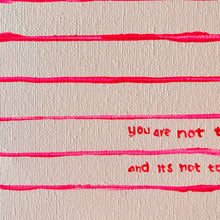 you are not t
and its not to